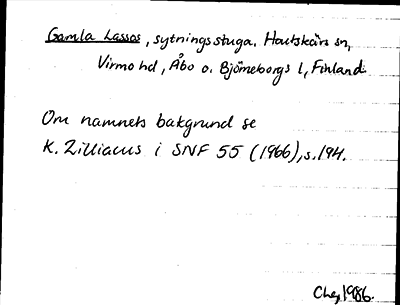 Gamla Lassos, sytningsstuga. Houtskärs sn,
Virmo hd, Åbo o. Björneborgs l, Finland.
Om namnets bakgrund se
K. Zilliacus i SNF 55 (1966), s. 194.
1986.